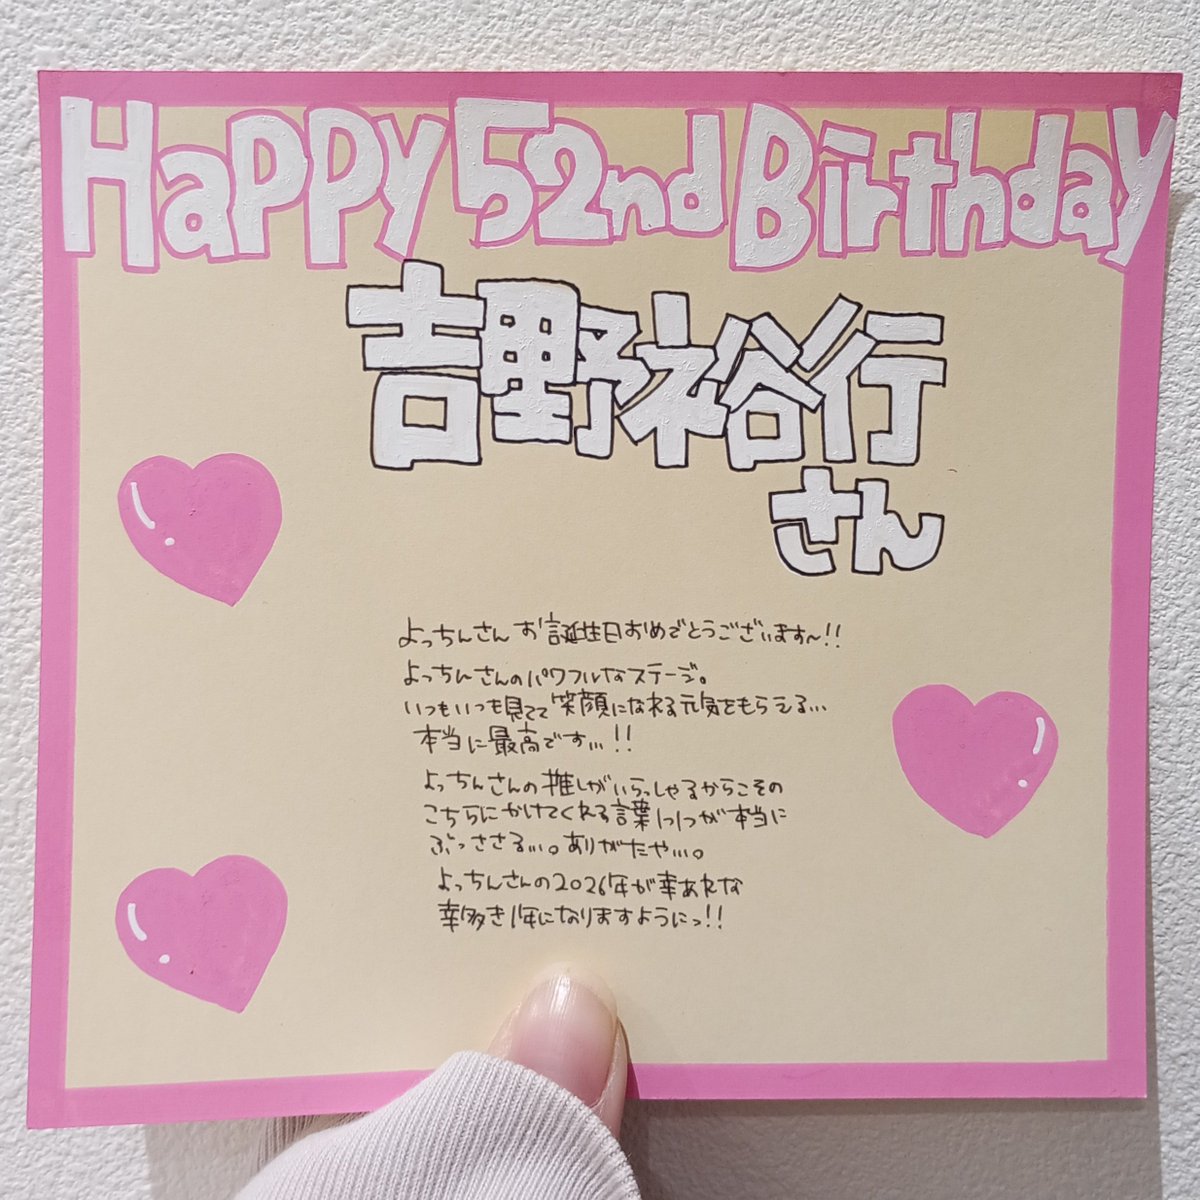 Happy 52nd Birthday
吉野裕行
さん
よっちんさんお誕生日おめでとうございます〜!!
よっちんさんのパワフルなステージ。
いつもいつも見てて笑顔になれる元気をもらえる...
本当に最高です...!!
よっちんさんの推しがいらっしゃるからこその
こちらにかけてくれる言葉1つ1つが本当に
ぶっささる...。ありがたや...。
よっちんさんの2026年が幸あれな
幸多き1年になりますようにっ!!